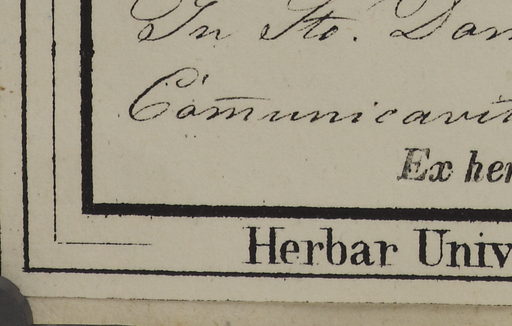 In Sto. Dom
Com̄unicavit
Ex her
Herbar Univ